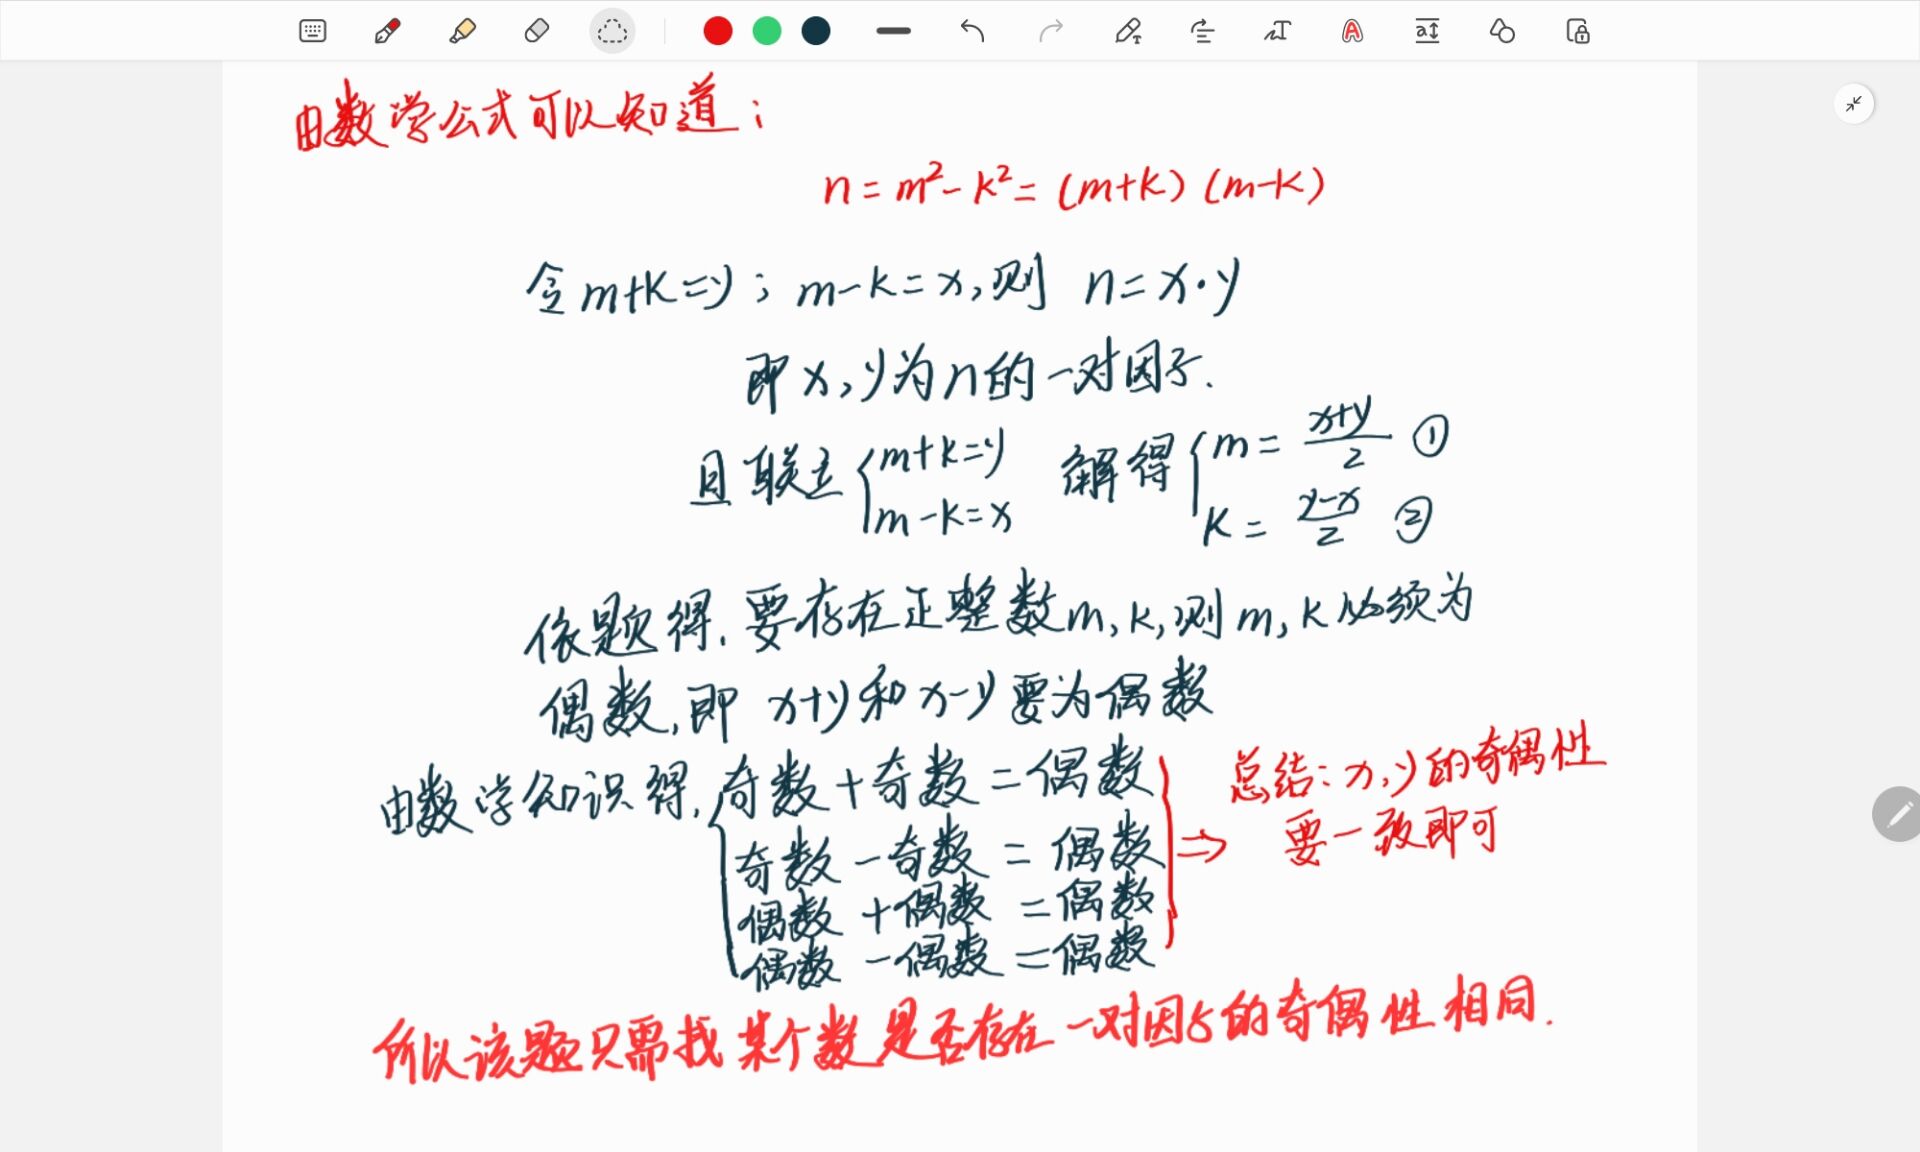 由数学公式可以知道：
n = m² - k² = (m+k) (m-k)
令 m+k=y ; m-k=x, 则 n = x·y
即 x, y 为 n 的一对因子.
且联立 { m+k=y m-k=x 解得 { m = (x+y)/2 ① k = (y-x)/2 ②
依题得, 要存在正整数 m, k, 则 m, k 必须为
偶数, 即 x+y 和 x-y 要为偶数
由数学知识得, { 奇数 + 奇数 = 偶数
奇数 - 奇数 = 偶数
偶数 + 偶数 = 偶数
偶数 - 偶数 = 偶数
⇒ 总结: x, y 的奇偶性
要一致即可
所以该题只需找某个数是否存在一对因子的奇偶性相同.